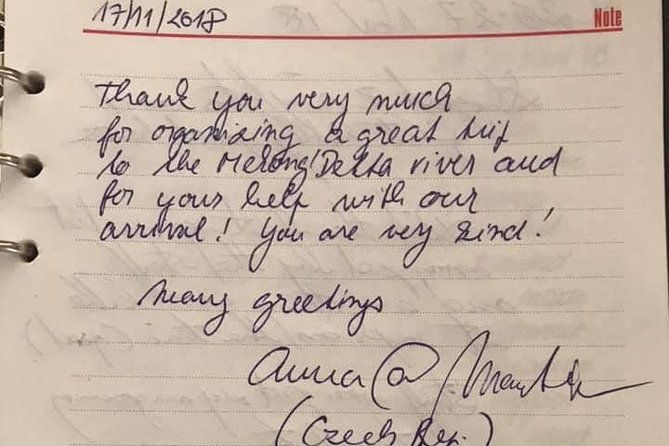 17/11/2018
Note
Thank you very much
for organizing a great trip
to the Mekong Delta river and
for your help with our
arrival! You are very kind!
Many greetings
Anna @
(Czech Rep.)